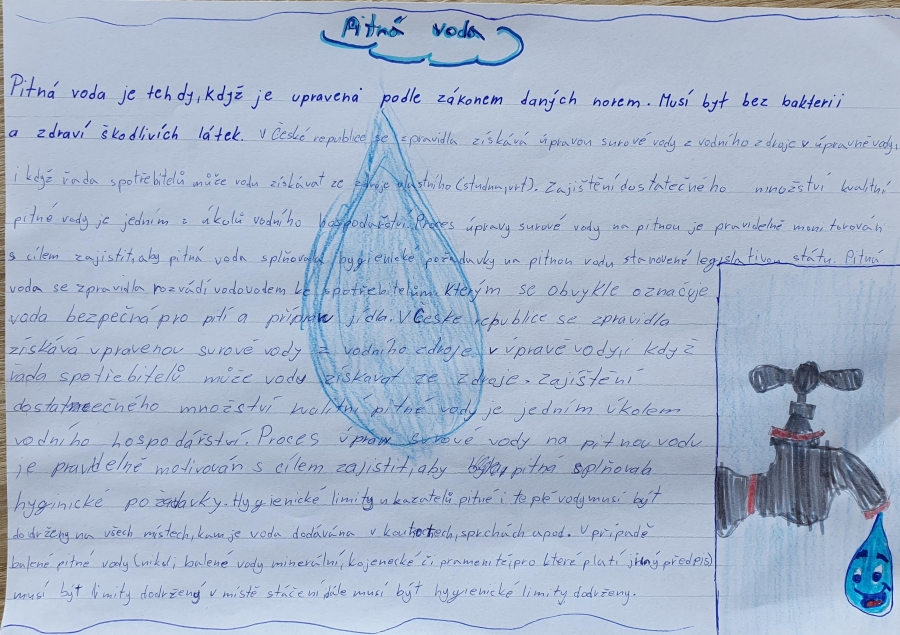 Pitná voda
Pitná voda je tehdy, když je upravená podle zákonem daných norem. Musí byt bez bakterii
a zdraví škodlivích látek. V České republice se zpravidla získává úpravou surové vody z vodního zdroje v úpravně vody,
i když řada spotřebitelů může vodu získávat ze zdroje vlastního (studna, vrt). Zajištění dostatečného množství kvalitní
pitné vody je jedním z úkolů vodního hospodářství. Proces úpravy surové vody na pitnou je pravidelně monitorován
s cílem zajistit, aby pitná voda splňovala hygienické požadavky na pitnou vodu stanovené legislativou státu. Pitná
voda se zpravidla rozvádí vodovodem ke spotřebitelům. Kterým se obvykle označuje
voda bezpečná pro pití a příprav jídla. V České republice se zpravidla
získává upravenou surové vody z vodního zdroje v úpravě vody, i když
řada spotřebitelů může vody získávat ze zdroje. Zajištění
množství kvalitní pitné vody je jedním úkolem
vodního hospodářství. Proces úprav surové vody na pitnou vodu
je pravidelně motivován s cílem zajistit, aby pitná splňovala
hyginické Hygienické limity ukazatelů pitné i teplé vody musí být
dodrženy na všech místech, kam je voda dodávána v sprchách apod. V případě
balené pitné vody (nikoli balené vody minerální, kojenecké či pramenité, pro které platí jiný předpis)
musí být limity dodrženy v místě stáčení dále musí být hygienické limity dodrženy.